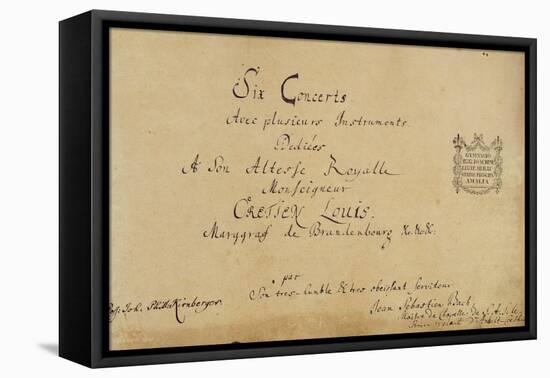 Six Concerts
Avec plusieurs Instruments.
Dediées
A Son Altesse Royalle
Monseigneur
CRETIEN LOUIS.
Marggraf de Brandenbourg &c. &c. &c:
par
Son tres-humble & tres obeissant Serviteur
Jean Sebastien Bach,
Maitre de Chapelle de S. A. S. le
Prince regnant d'Anhalt-
Joh. Phill. Kirnberger.
GYMNASIO
IOACHIM
AMALIA